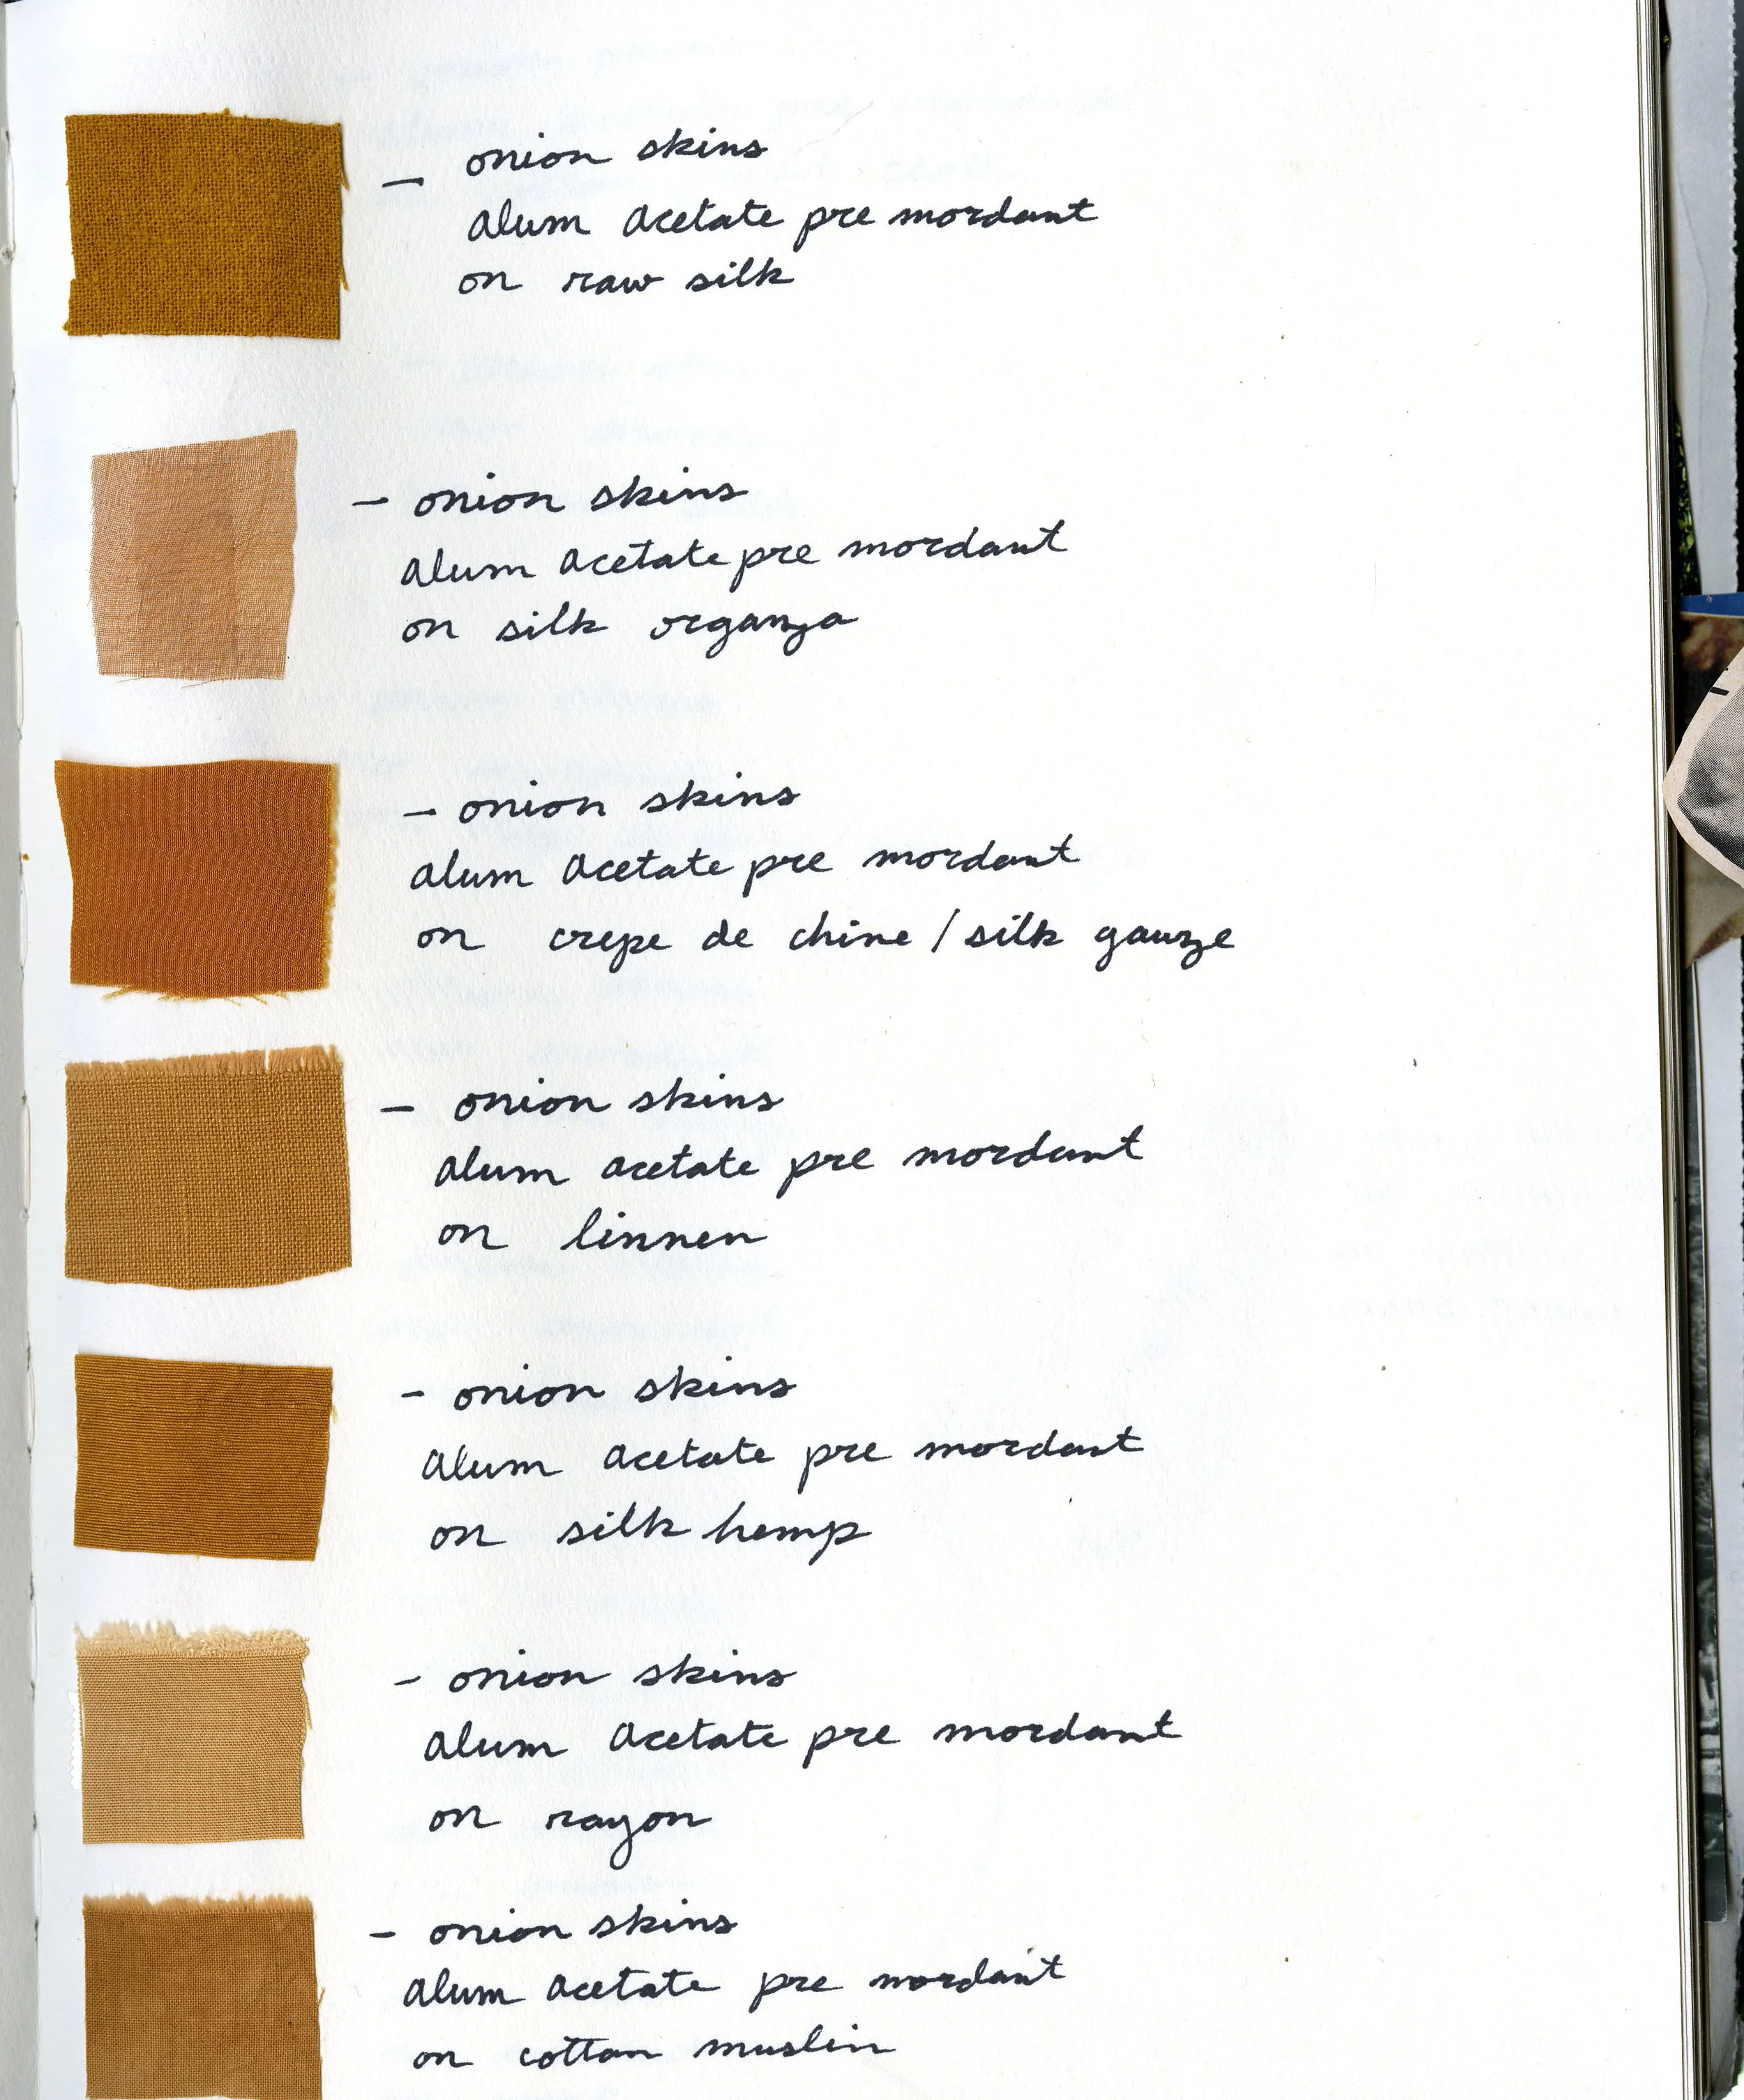 — onion skins
alum acetate pre mordant
on raw silk
— onion skins
alum acetate pre mordant
on silk organza
— onion skins
alum acetate pre mordant
on crepe de chine / silk gauze
— onion skins
alum acetate pre mordant
on linnen
- onion skins
alum acetate pre mordant
on silk hemp
- onion skins
alum acetate pre mordant
on rayon
- onion skins
alum acetate pre mordant
on cotton muslin